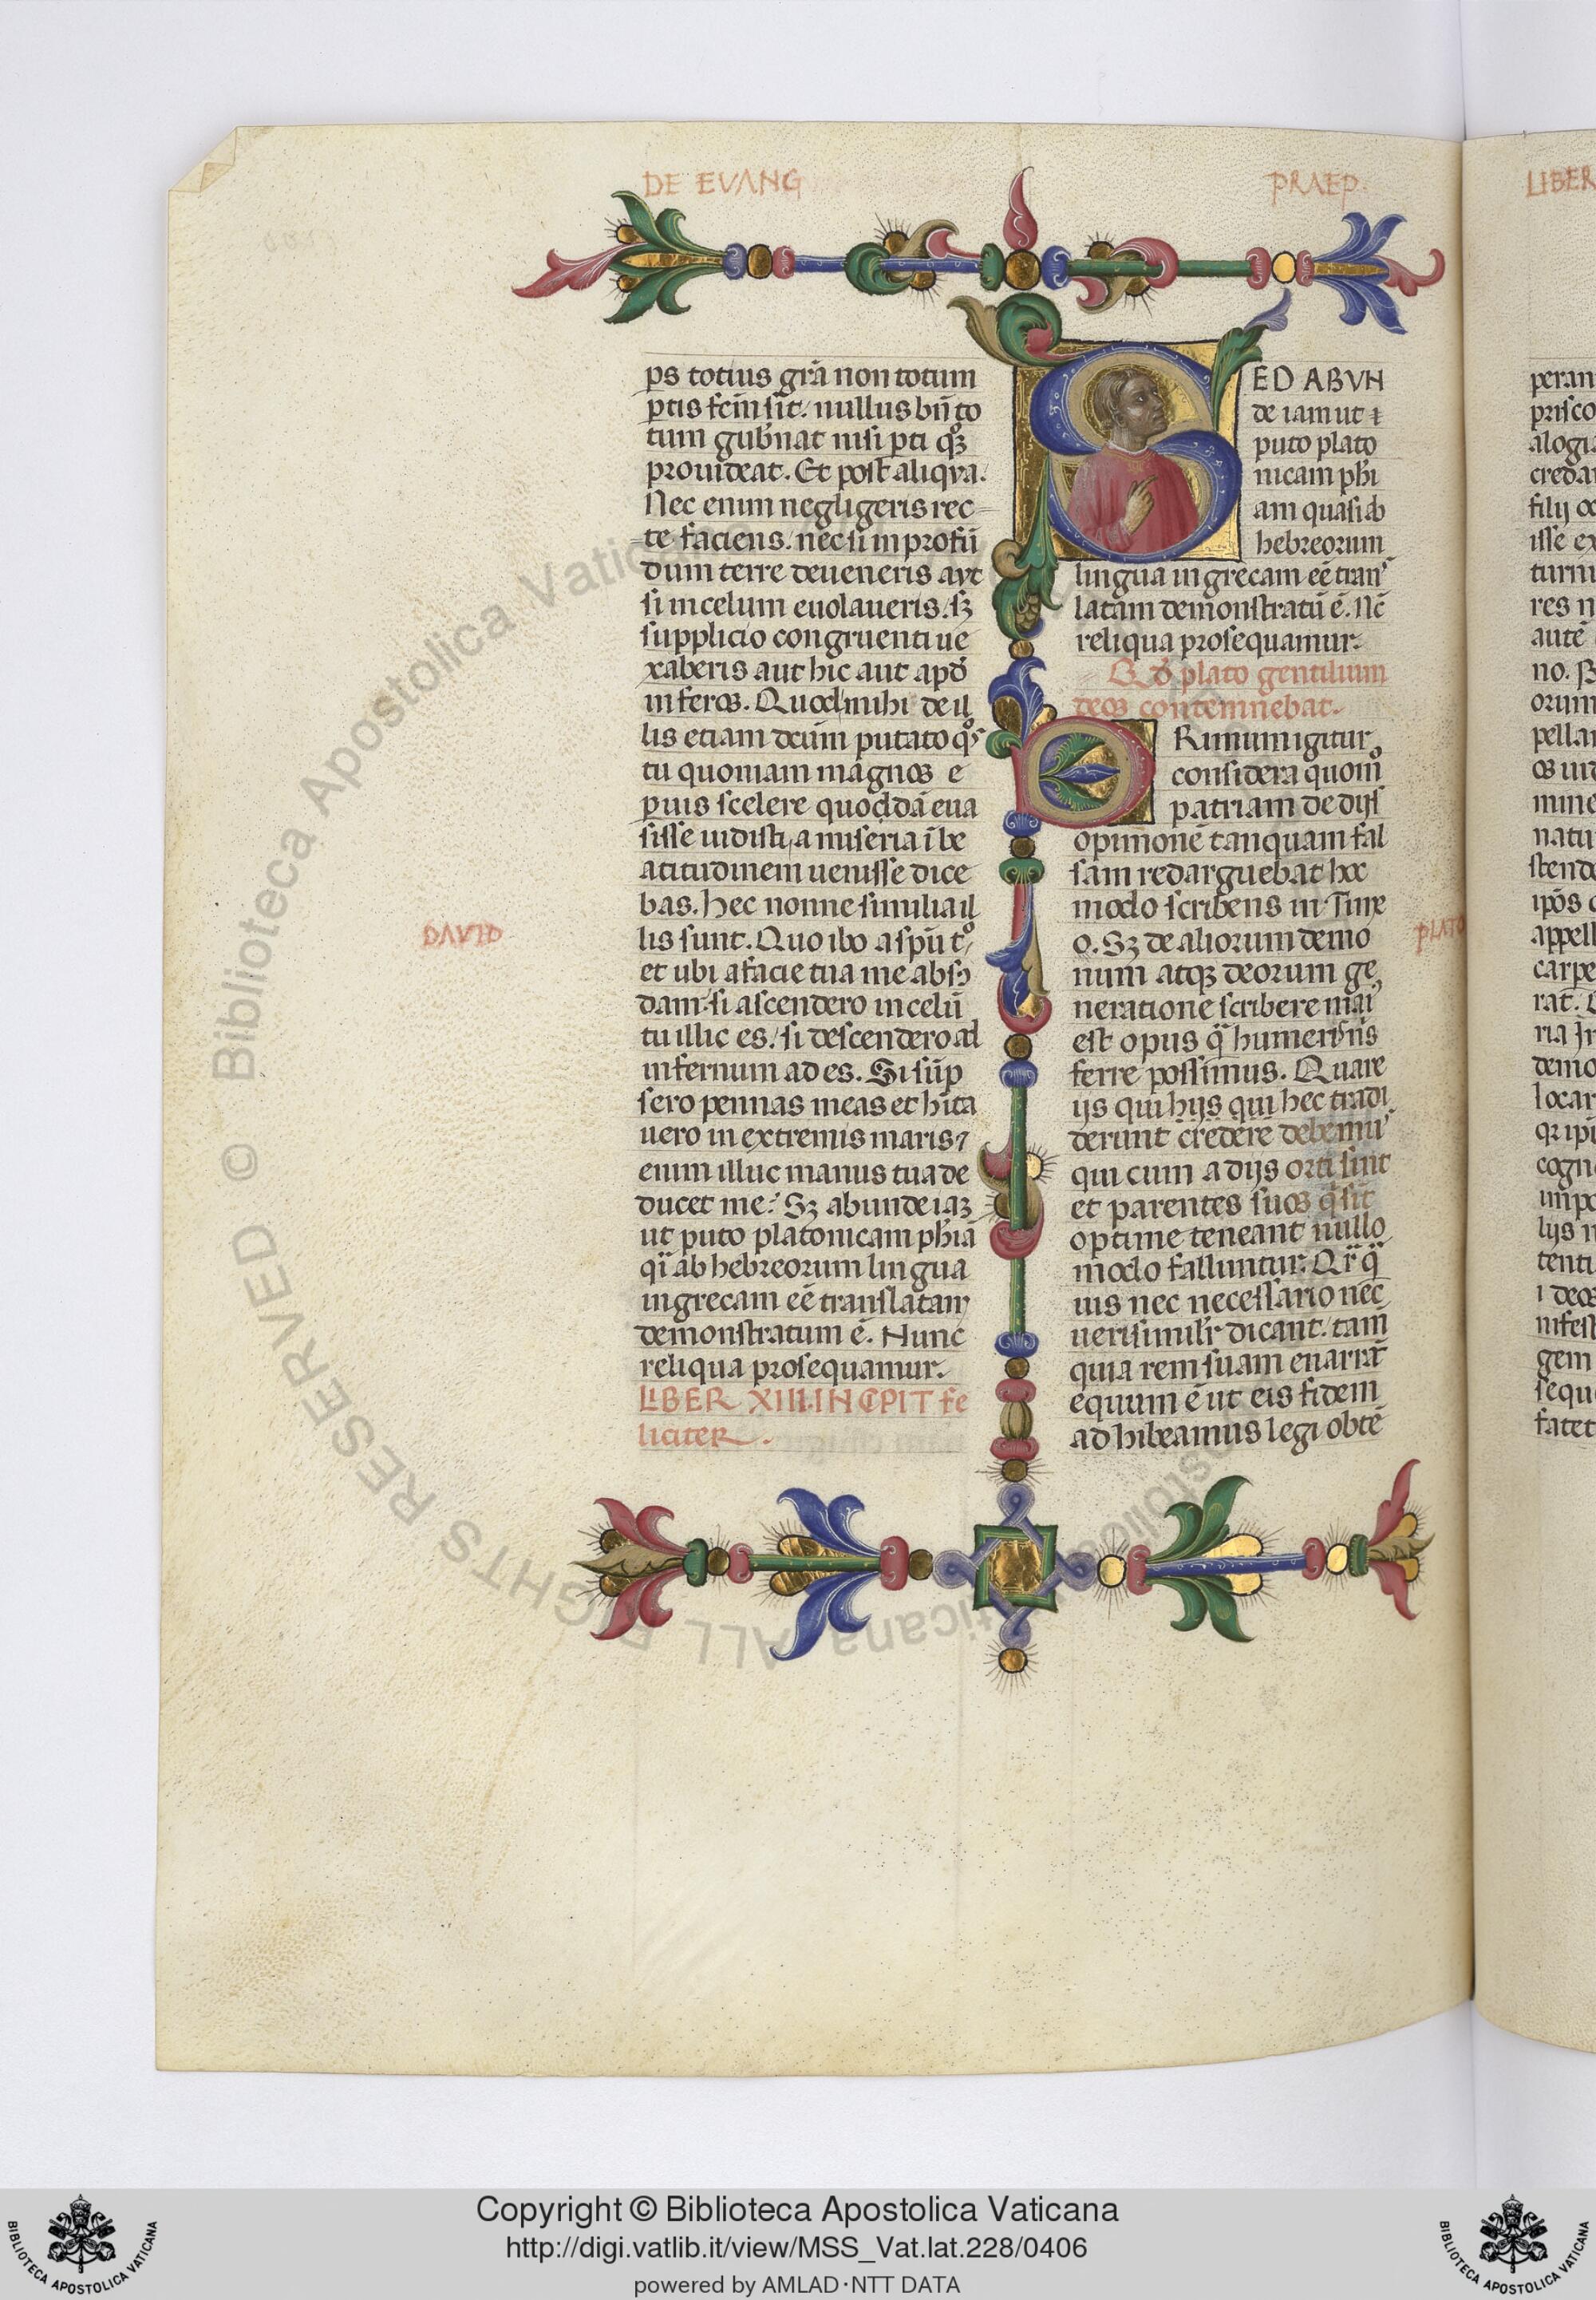 DE EVANG
PRAEP.
LIBER
ps totius grā non totum
ptis
nullus
to
tum gubnat nisi pti
prouideat. Et post aliqua.
Nec enim negligeris rec
te faciens. nec si in profū
dum terre deueneris aut
si in celum euolaueris. sꝫ
supplicio congruenti ue
xaberis aut hic aut apd
inferos. Quod mihi de il
lis etiam dictum putato
tu quoniam magnos e
puis scelere quoddā eua
sisse uidisti, a miseria ī be
atitudinem uenisse dice
bas. hec nonne similia il
DAVID
lis sunt. Quo ibo a spū tº,
et ubi a facie tua me absↄ
dam. si ascendero in celū
tu illic es. si descendero ad
infernum ad es. Si sūp
sero pennas meas et hīta
uero in extremis maris ⁊
enim illuc manus tua de
ducet me. Sꝫ abunde iaꝫ
ut puto platonicam phīā
qī ab hebreorum lingua
in grecam eē translatam
demonstratum ē. Nunc
reliqua prosequamur.
LIBER XIIII. INCIPIT fe
liciter.
S ED ABVN
de iam ut
puto plato
nicam phī
am quasi ab
hebreorum
lingua in grecam eē tranˢ
latam demonstratū ē. Nc̄
reliqua prosequamur.
Qd plato gentilium
deos contemnebat.
P Rimum igitur
considera quom̊
patriam de dijs
opinionē tanquam fal
sam redarguebat hoc
modo scribens in Time
PLATO
o. Sꝫ de aliorum demo
num atqꝫ deorum ge
neratione scribere maiˢ
est opus q̄ humeris nr̄is
ferre possimus. Quare
ijs qui hijs qui hec tradi
derunt credere debemuˢ
qui cum a dijs orti sint
et parentes suos q̄ sīt
optime teneant nullo
modo falluntur. Qr̄ q̄
uis nec necessario nec
uerisimilr dicant. tam̄
quia rem suam enarrāt
equum ē ut eis fidem
adhibeamus legi obtē
Copyright © Biblioteca Apostolica Vaticana
http://digi.vatlib.it/view/MSS_Vat.lat.228/0406
powered by AMLAD·NTT DATA
BIBLIOTECA APOSTOLICA VATICANA
BIBLIOTECA APOSTOLICA VATICANA